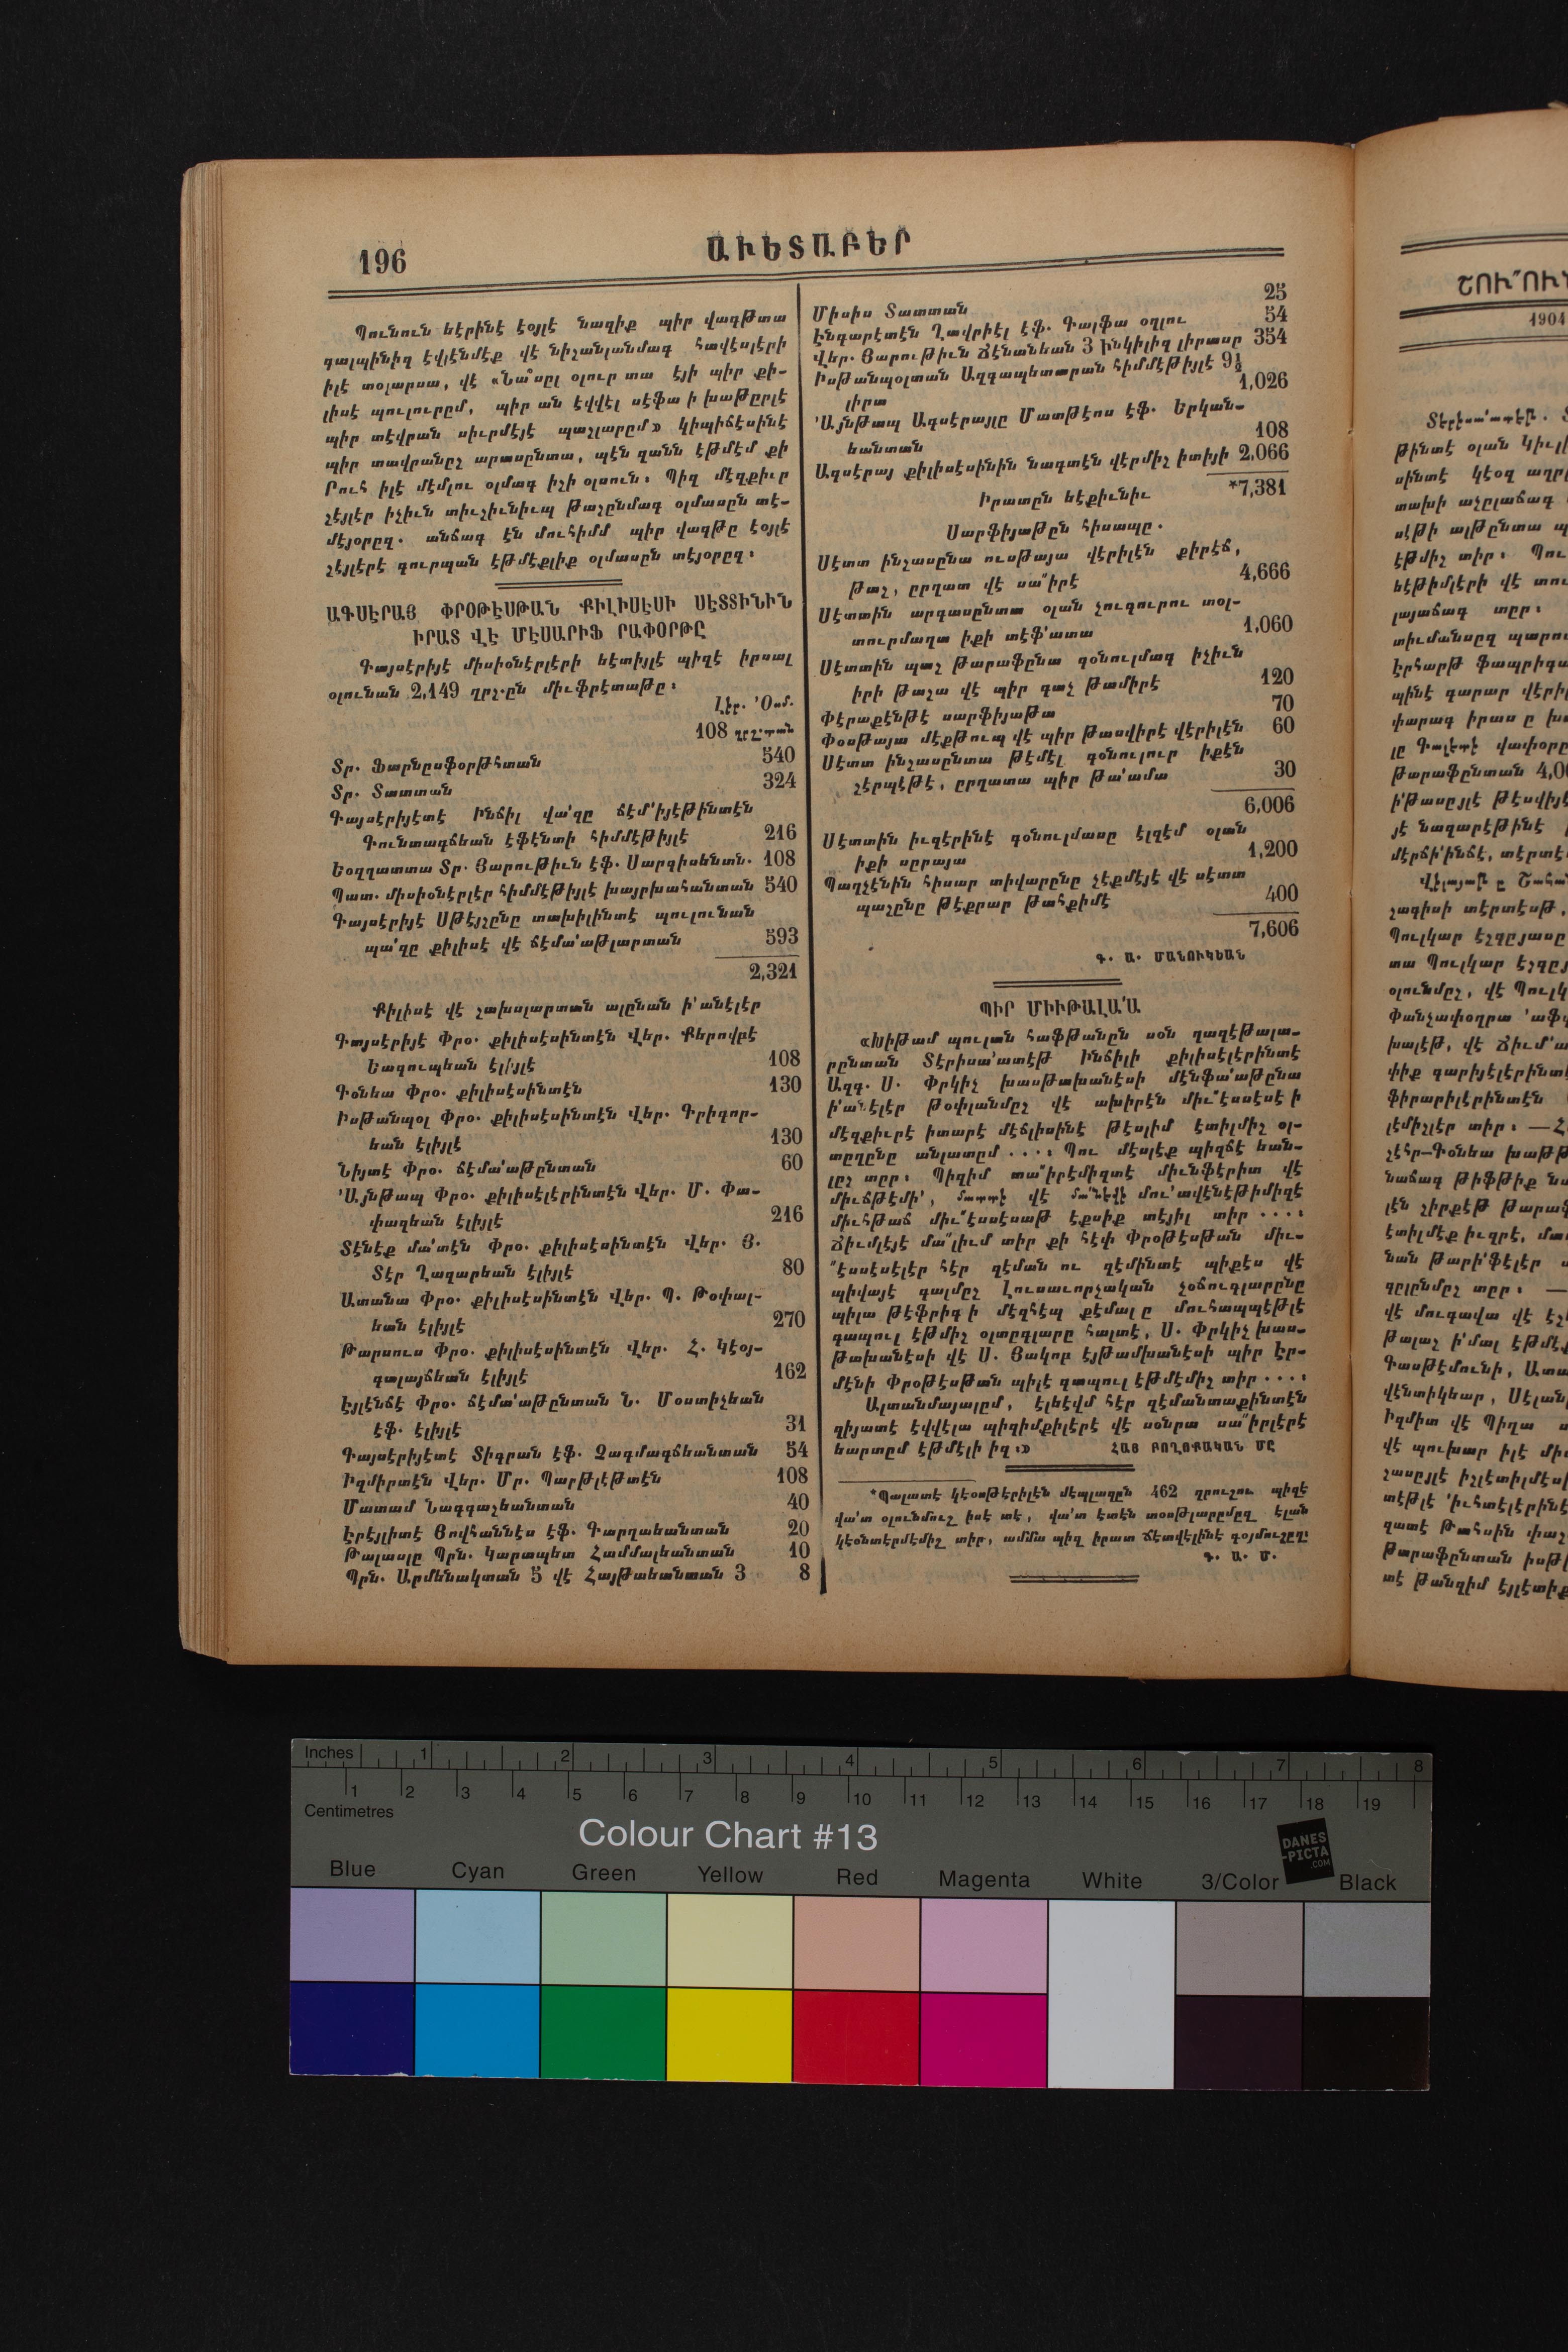 196
ԱՒԵՏԱԲԵՐ
Պունուն եէրինէ էօյլէ նազիք պիր վագթտա
գալպինիզ էվլէնմէք վէ նիշանլանմագ հավէսլէրի
իլէ տօլարսա, վէ «Նա՞սըլ օլուր տա էյի պիր քի-
լիսէ պուլուրըմ, պիր ան էվվէլ սէֆա ի խաթըրլէ
պիր տէվրան սիւրմէյէ պաշլարըմ» կիպիճէսինէ
պիր տավրանըշ արասընտա, պէն զանն էթմէմ քի
Րուհ իլէ մէմլու օլմագ իշի օլսուն։ Պիզ մէզքիւր
շէյլէր իչիւն տիւշիւնիւպ թաշընմագ օլմասըն տէ-
մէյօրըզ. անճագ էն մուհիմմ պիր վագթը էօյլէ
շէյլէրէ գուրպան էթմէքլիք օլմասըն տէյօրըզ։
ԱԳՍԷՐԱՅ ՓՐՕԹԷՍԹԱՆ ՔԻԼԻՍԷՍԻ ՍԷՏՏԻՆԻՆ
ԻՐԱՏ ՎԷ ՄԷՍԱՐԻՖ ՐԱՓՕՐԹԸ
Գայսէրիյէ միսիօնէրլէրի եէտիյլէ պիզէ իրսալ
օլունան 2,149 ղրշ.ըն միւֆրէտաթը։
Լէր. ՚Օսմ.
108 ղրշ.տան
Տր. Ֆարնըսֆօրթհտան 540
Տր. Տատտան 324
Գայսէրիյէտէ Ինճիլ վա՛զը ճէմ՚իյէթինտէն
Գունտագճեան էֆէնտի հիմմէթիյլէ 216
Եօզղատտա Տր. Յարութիւն էֆ. Սարգիսենտն. 108
Պատ. միսիօնէրլէր հիմմէթիյլէ խայրխահանտան 540
Գայսէրիյէ Սթէյշընը տախիլինտէ պուլունան
պա՛զը քիլիսէ վէ ճէմա՛աթլարտան 593
2,321
Քիլիսէ վէ շախսլարտան ալընան ի՛անէլէր
Գայսէրիյէ Փրօ. քիլիսէսինտէն Վեր. Քերովբէ
Եագուպեան էլիյլէ 108
Գօնեա Փրօ. քիլիսէսինտէն 130
Իսթանպօլ Փրօ. քիլիսէսինտէն Վեր. Գրիգոր-
եան էլիյլէ 130
Նիյտէ Փրօ. ճէմա՛աթընտան 60
՚Այնթապ Փրօ. քիլիսէլէրինտէն Վեր. Մ. Փա-
փազեան էլիյլէ 216
Տէնէք մա՛տէն Փրօ. քիլիսէսինտէն Վեր. Յ.
Տէր Ղազարեան էլիյլէ 80
Ատանա Փրօ. քիլիսէսինտէն Վեր. Պ. Թօփալ-
եան էլիյլէ 270
Թարսուս Փրօ. քիլիսէսինտէն Վեր. Հ. Կէօյ-
գալայճեան էլիյլէ 162
Էյլէնճէ Փրօ. ճէմա՛աթընտան Ն. Մօստիչեան
էֆ. էլիյլէ 31
Գայսէրիյէտէ Տիգրան էֆ. Չագմագճեանտան 54
Իզմիրտէն Վեր. Մր. Պարթլէթտէն 108
Մատամ Նագգաշեանտան 40
Էրէյլիտէ Յովհաննէս էֆ. Գարղաեանտան 20
Թալասլը Պրն. Կարապետ Համմալեանտան 10
Պրն. Արմենակտան 5 վէ Հայթաեանտան 3 8
Միսիս Տատտան 25
Էնգարէտէն Ղավրիէլ էֆ. Գալֆա օղլու 54
Վեր. Յարութիւն Ճէնանեան 3 ինկիլիզ լիրասը 354
Իսթանպօլտան Ազգապետարան հիմմէթիյլէ 9½
լիրա 1,026
՚Այնթապ Ագսէրայլը Մատթէոս էֆ. Երկան-
եանտան 108
Ագսէրայ քիլիսէսինին նագտէն վէրմիշ իտիյի 2,066
*7,381
Իրատըն եէքիւնիւ
Սարֆիյաթըն հիսապը.
Սէտտ ինշասընա ուսթայա վէրիլէն քիրէճ,
թաշ, ըրղատ վէ սա՞իրէ 4,666
Սէտտին արգասընտա օլան չուգուրու տօլ-
տուրմաղա իքի տէֆ՛ատա 1,060
Սէտտին պաշ թարաֆընա գօնուլմագ իչիւն
իրի թաշա վէ պիր գաչ թամիրէ 120
Փէրաքէնթէ սարֆիյաթա 70
Փօսթայա մէքթուպ վէ պիր թասվիրէ վէրիլէն 60
Սէտտ ինշասընտա թէմէլ գօնուլուր իքէն
շէրպէթէ, ըրղատա պիր թա՛ամա 30
6,006
Սէտտին իւզէրինէ գօնուլմասը էլզէմ օլան
իքի սըրայա 1,200
Պաղչէնին հիսար տիվարընը չէքմէյէ վէ սէտտ
պաշընը թէքրար թահքիմէ 400
7,606
Գ. Ա. ՄԱՆՈՒԿԵԱՆ
ՊԻՐ ՄԻՒԹԱԼԱ՛Ա
«Խիթամ պուլան հաֆթանըն սօն ղազէթալա-
րընտան Տէրիսա՛ատէթ Ինճիլի քիլիսէլէրինտէ
Ազգ. Ս. Փրկիչ խասթախանէսի մէնֆա՛աթընա
ի՛անէլէր թօփլանմըշ վէ ախիրէն միւ՞էսսէսէ ի
մէզքիւրէ իտարէ մէճլիսինէ թէսլիմ էտիլմիշ օլ-
տըղընը անլատըմ ....։ Պու մէսլէք պիզճէ եան-
լըշ տըր։ Պիզիմ տա՞իրէմիզտէ միւնֆէրիտ վէ
միւճթէմի՛, մատտի վէ մա՛նէվի մու՛ավէնէթիմիզէ
միւհթաճ միւ՞էսսէսաթ էքսիք տէյիլ տիր ....։
Ճիւմլէյէ մա՞լիւմ տիր քի հէփ Փրօթէսթան միւ-
՞էսսէսէլէր հէր զէման ու զէմինտէ պիքէս վէ
պիվայէ գալմըշ Լուսաւորչական չօճուգլարընը
պիլա թէֆրիգ ի մէզհէպ քէմալ ը մուհապպէթլէ
գապուլ էթմիշ օլտըգլարը հալտէ, Ս. Փրկիչ խաս-
թախանէսի վէ Ս. Յակոբ էյթամխանէսի պիր Էր-
մէնի Փրօթէսթան պիլէ գապուլ էթմէմիշ տիր ....։
Ալտանմայալըմ, էլեէվմ հէր զէմանտաքինտէն
զիյատէ էվվէլա պիզիմքիլէրէ վէ սօնրա սա՞իրլէրէ
եարտըմ էթմէլի իզ։» ՀԱՅ ԲՈՂՈՔԱԿԱՆ ՄԸ
*Պալատէ կէօսթէրիլէն մէպլաղըն 462 ղրուշու պիզէ
վա՛տ օլունմուշ իսէ տէ, վա՛տ էտէն տօսթլարըմըզ էլան
կէօնտէրմէմիշ տիր, ամմա պիզ իրատ ճէտվէլինէ գօյմուշըզ։
Գ. Ա. Մ.
ՇՈՒ՞ՈՒՆ
1904
Inches 1 2 3 4 5 6 7 8
1 2 3 4 5 6 7 8 9 10 11 12 13 14 15 16 17 18 19
Centimetres
Colour Chart #13
DANES
-PICTA
.COM
Blue Cyan Green Yellow Red Magenta White 3/Color Black